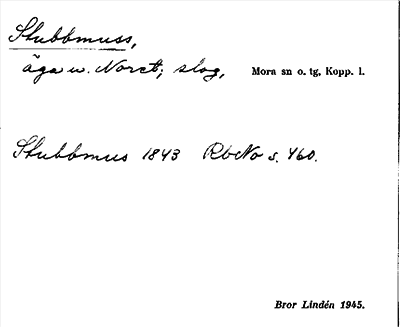 Stubbmuss,
äga u. Noret; slog, Mora sn o. tg, Kopp. l.
Stubbmus 1843 RbNo s. 460.
Bror Lindén 1945.